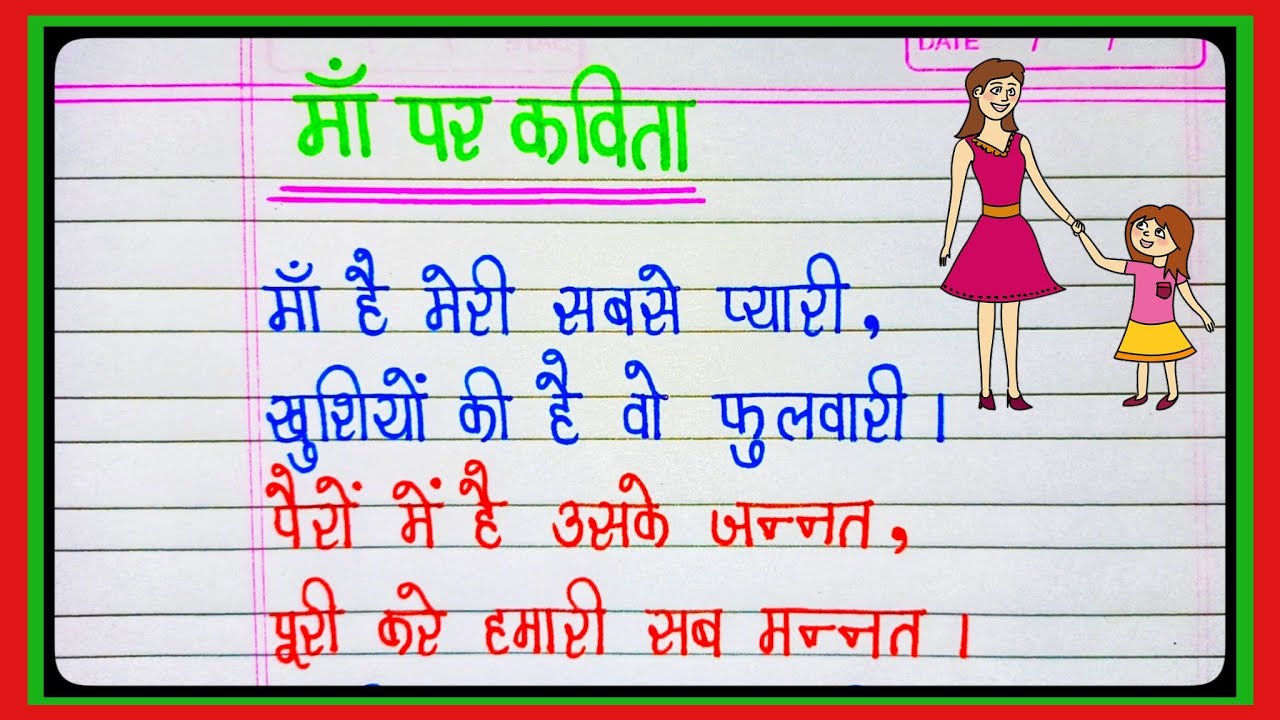 DATE / /
माँ पर कविता
माँ है मेरी सबसे प्यारी,
खुशियों की है वो फुलवारी।
पैरों में है उसके जन्नत,
पूरी करे हमारी सब मन्नत।